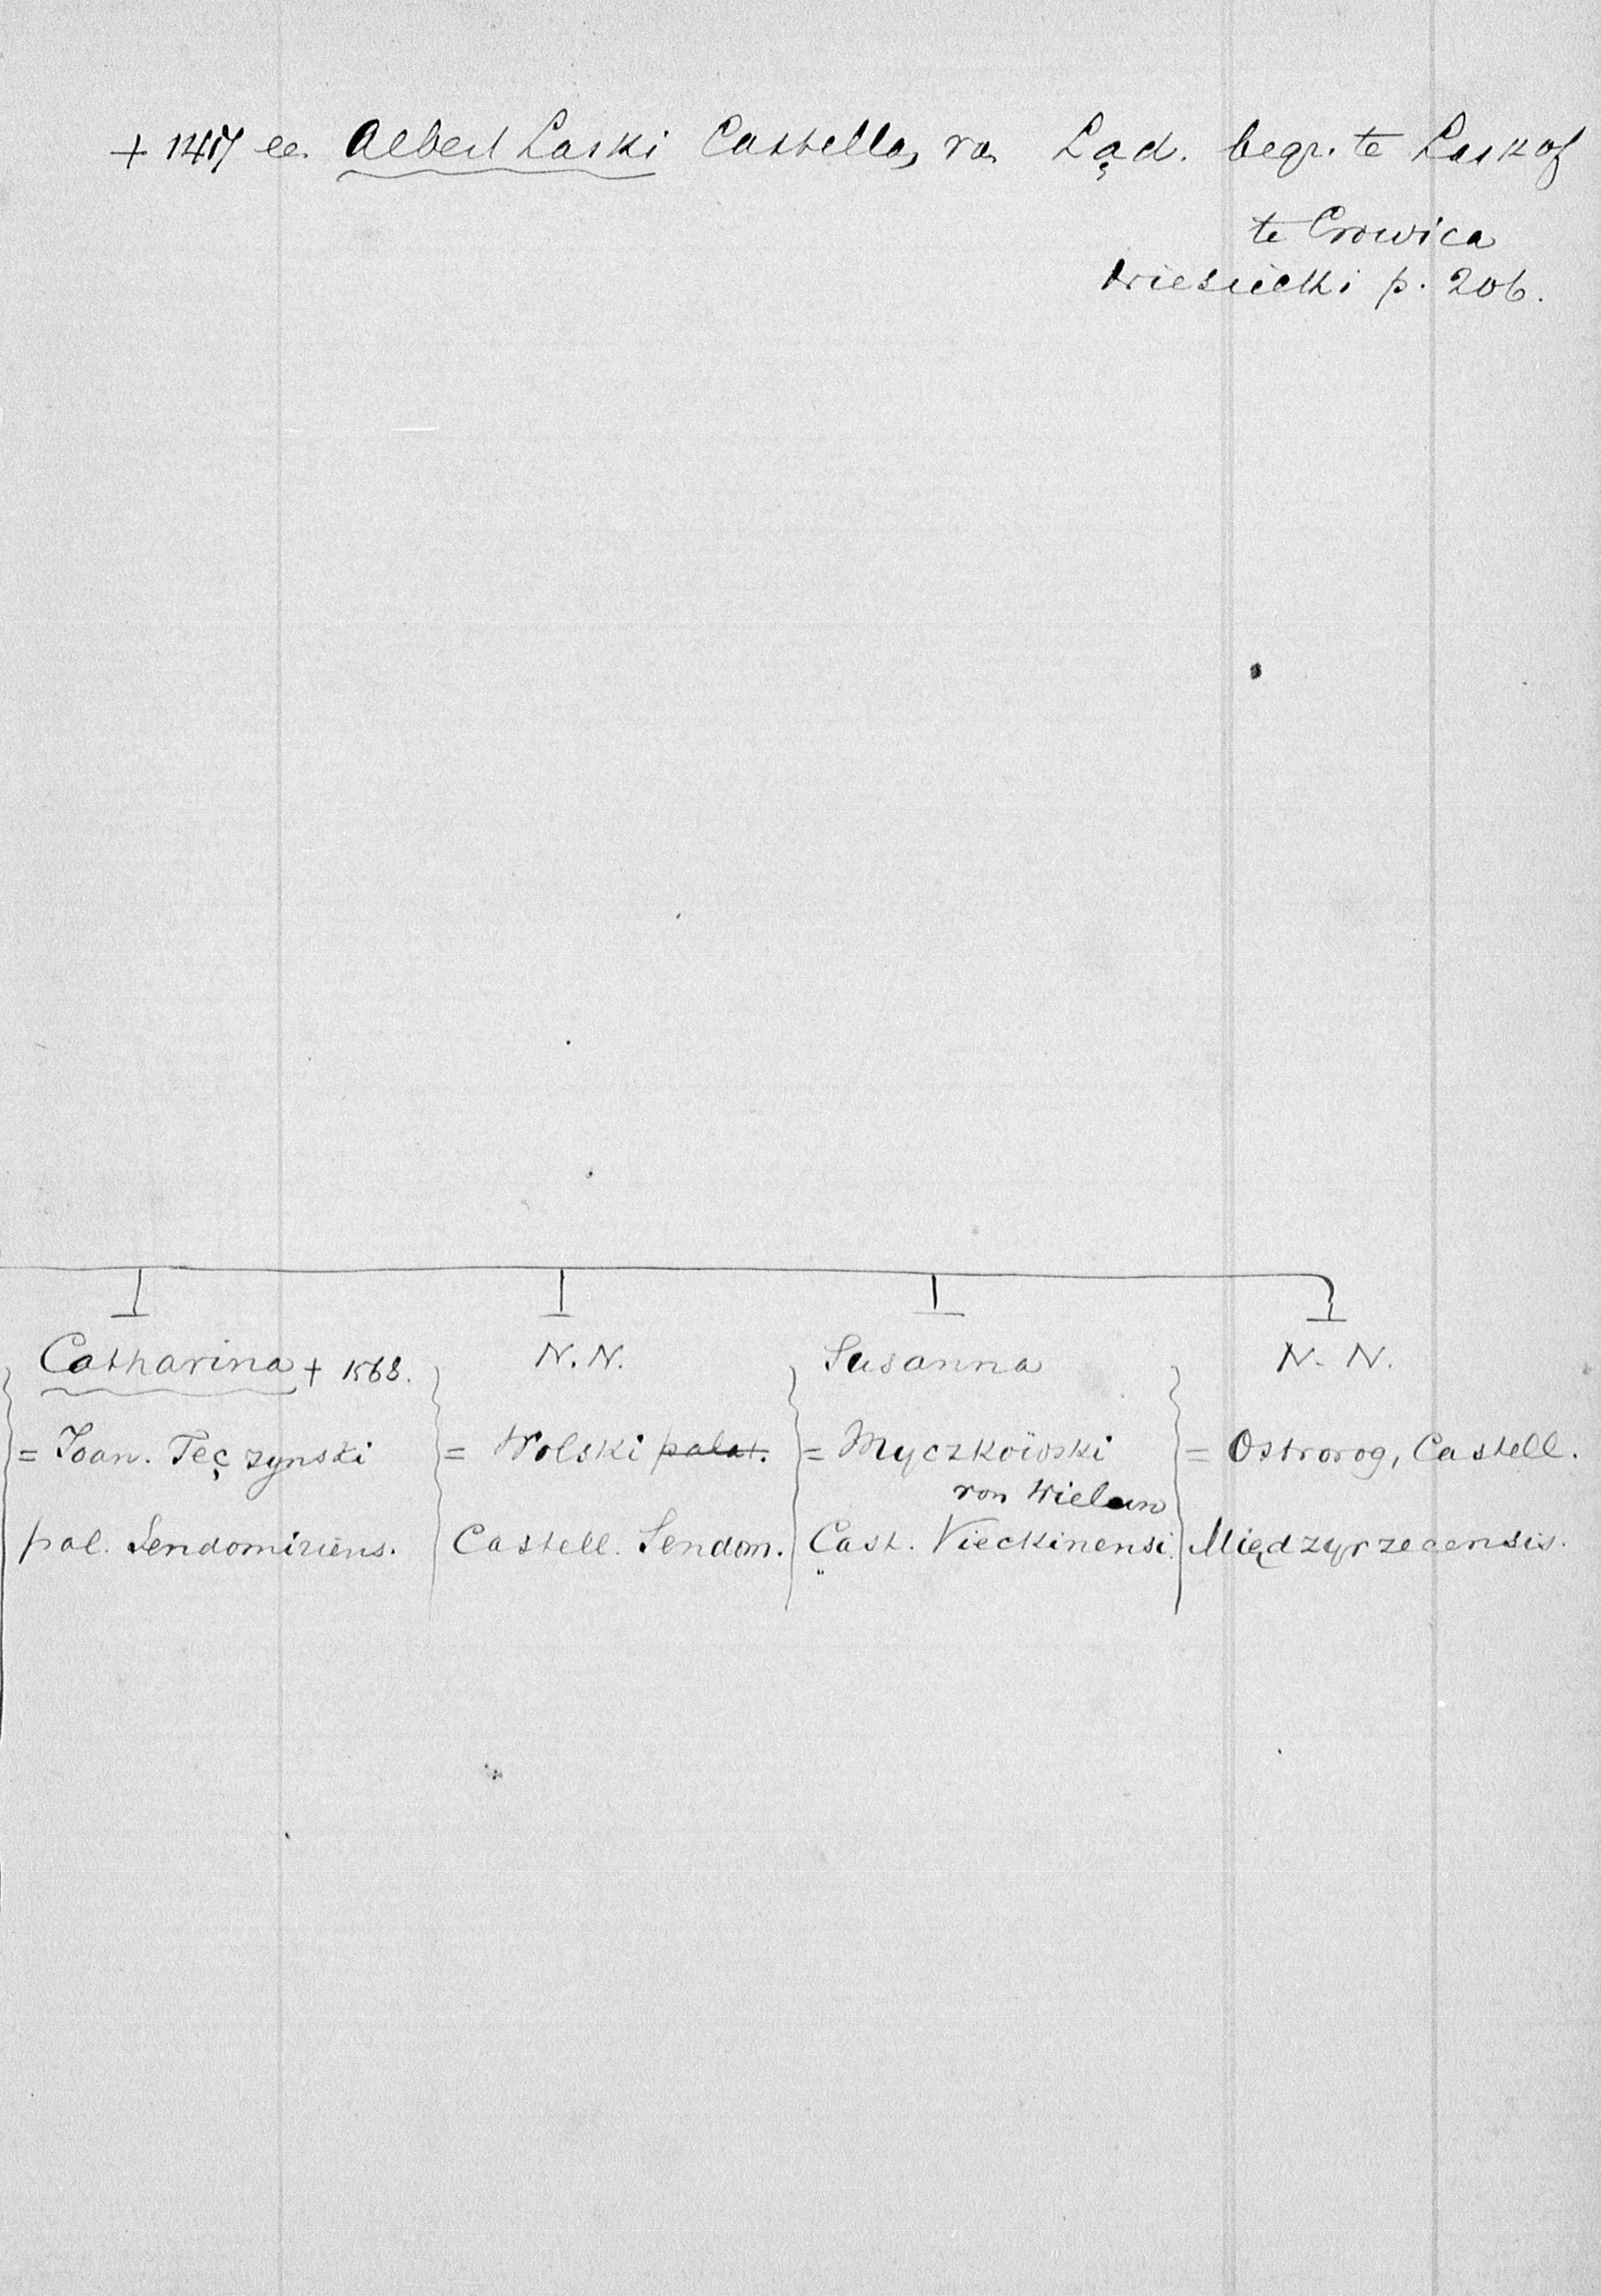 + 1417 ee. Albert Laski Castella, va. Ląd. begr. te Laskof
te Crowica
Niesiecki p. 206.
Catharina + 1568. N.N. Susanna N. N.
= Joan. Tęczynski = Wolski palat. = Myczkowski = Ostrorog, Castell.
von Wielun
pal. Sendomiriens. Castell. Sendom. Cast. Vieckinensi. Międzyrzecensis.